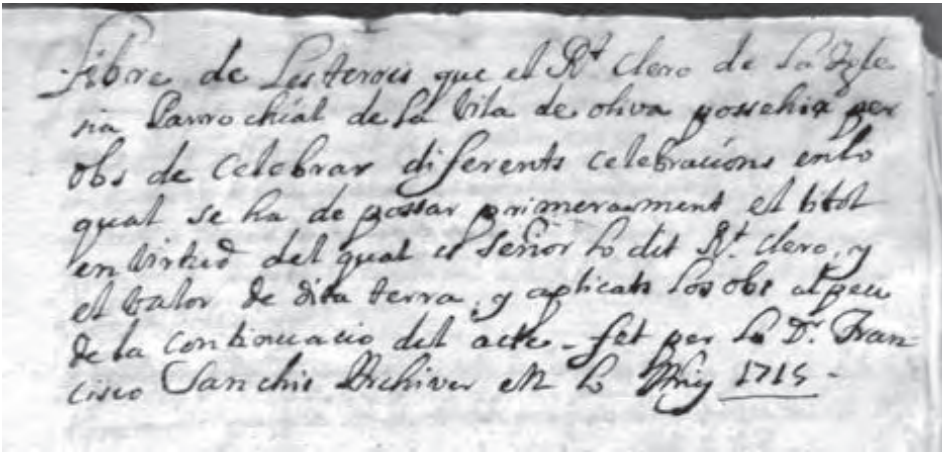 Llibre de Les terres que el R.t Clero de La Igle
sia Parrochial de La Vila de oliva possehix per
obs de Celebrar diferents celebracions en lo
qual se ha de possar primerament el titol
en virtud del qual es Señor lo dit R.t Clero, y
el valor de dita terra, y aplicats los obs al peu
de la Continuacio del acte - fet per lo D.r Fran-
cisco Sanchis Archiver en lo Any 1715 -